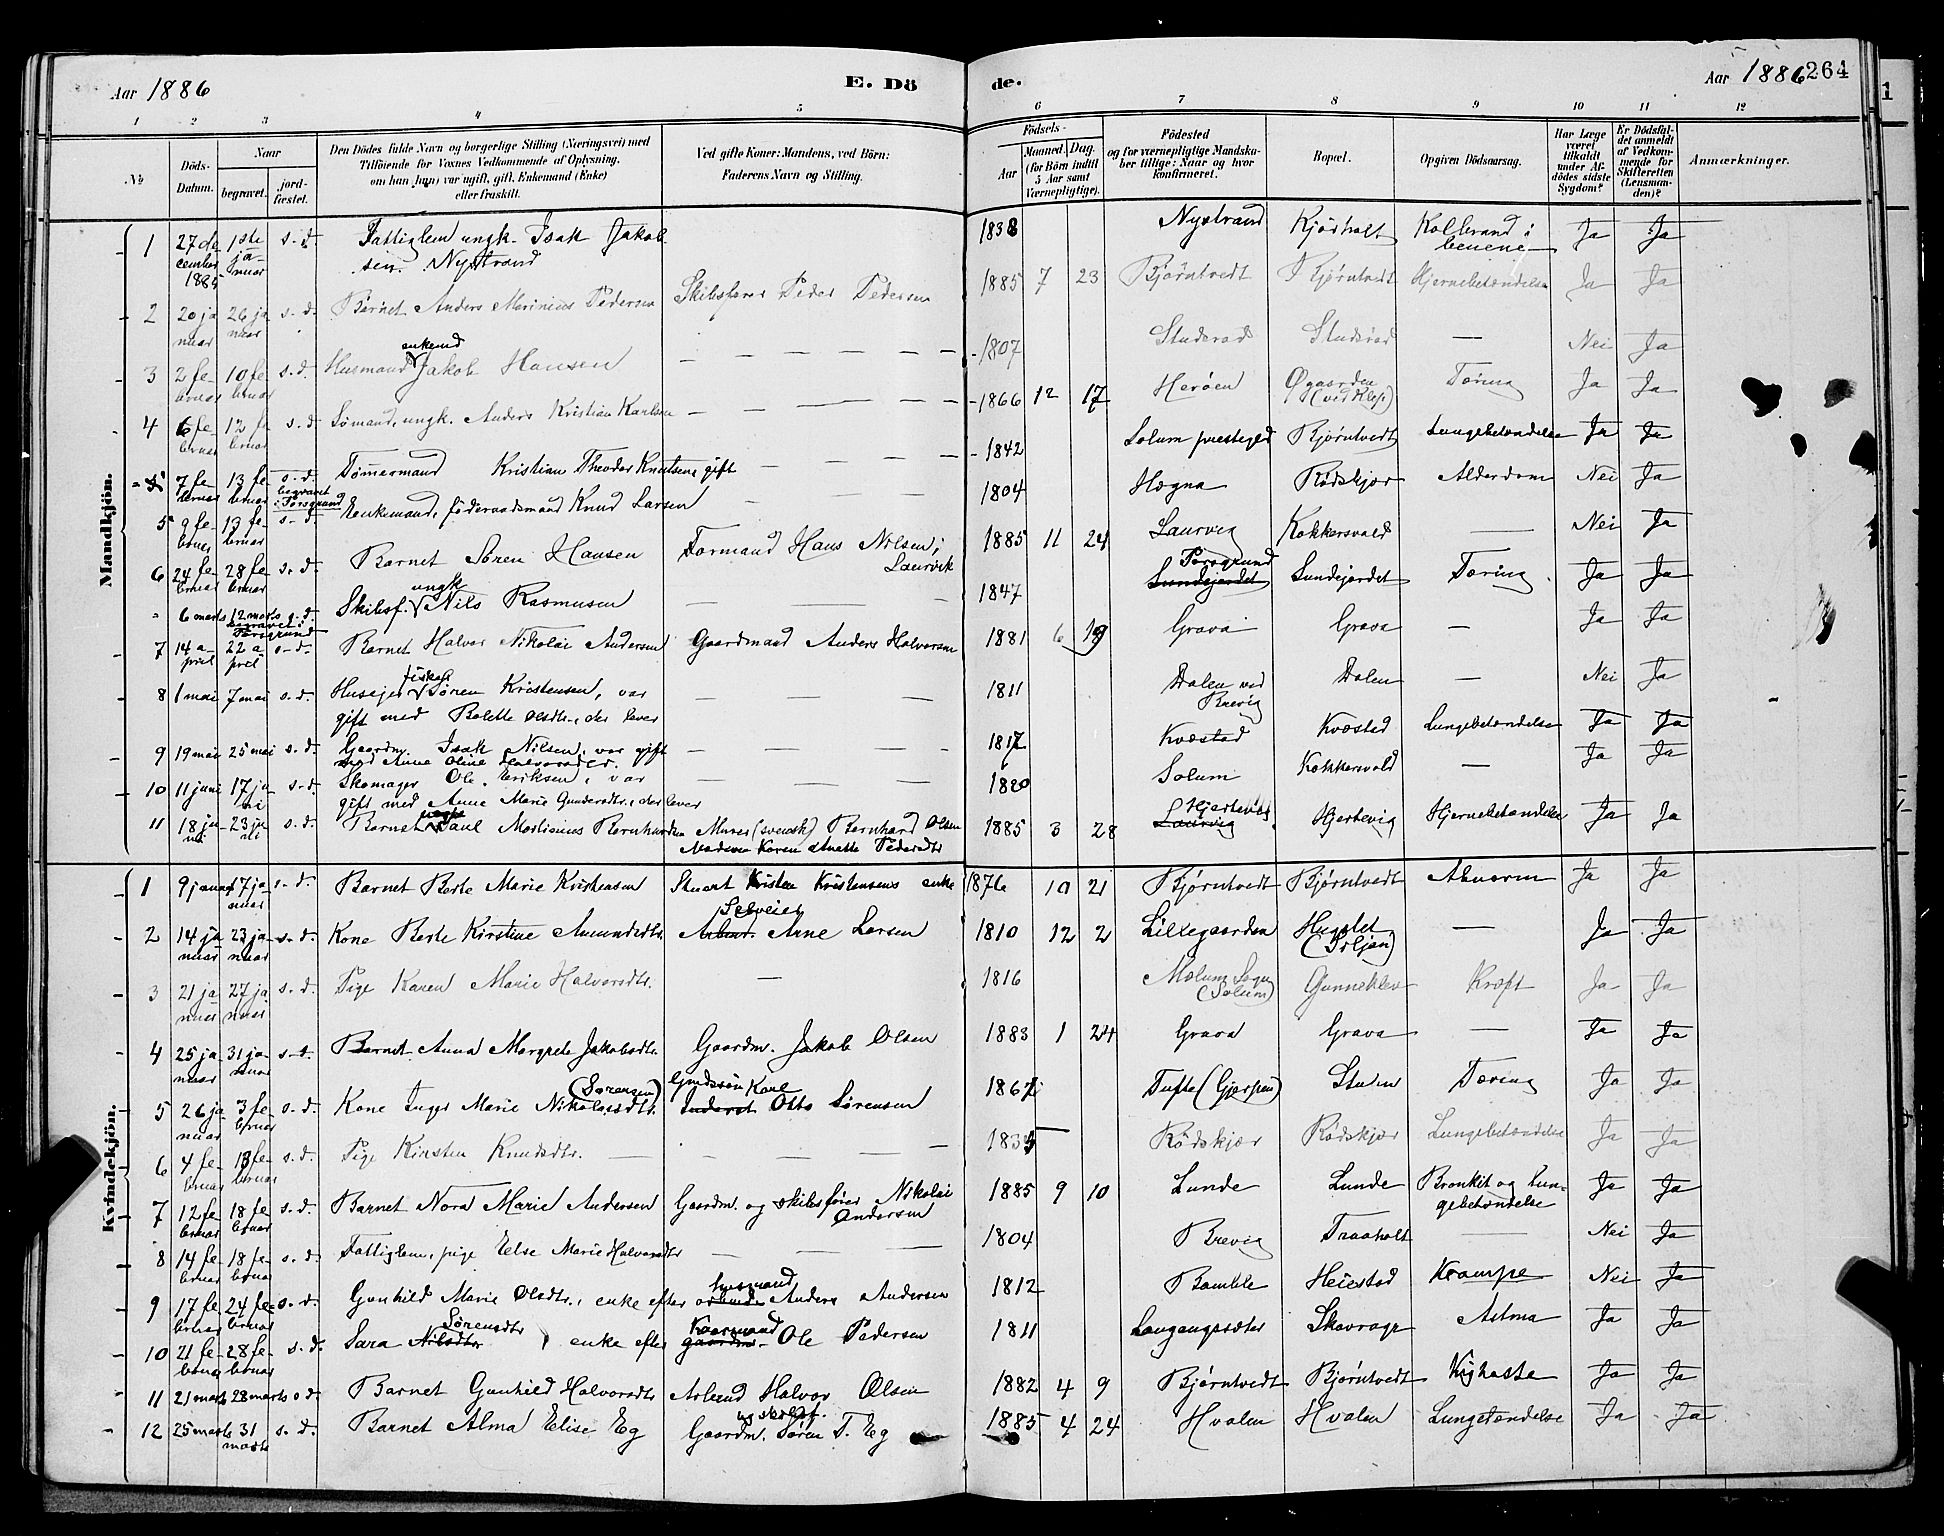 Aar 1886
E. Dö
de.
Aar 1886 264
1 2 3 4 5 6 7 8 9 10 11 12
No
Döds-Datum.
Naar
begravet.
jord-fæstet.
Den Dödes fulde Navn og borgerlige Stilling (Næringsvei) med
Tilföiende for Voxnes Vedkommende af Oplysning.
om han (hun) var ugift, gift, Enkemand (Enke)
eller fraskilt.
Ved gifte Koner: Mandens, ved Börn:
Faderens Navn og Stilling.
Födsels-
Aar
Maaned. Dag.
(for Börn indtil
5 Aar samt
Værnepligtige).
Födested
og for værnepligtige Mandska-
ber tillige: Naar og hvor
konfirmeret.
Bopæl.
Opgiven Dödsaarsag.
Har Læge
været
tilkaldt
under Af-
dödes sidste
Sygdom?
Er Dödsfal-
det anmeldt
af Vedkom-
mende for
Skifteretten
(Lensman-
den)?
Anmærkninger.
Mandkjön.
1 27 december 1885 1ste januar s. d. Fattiglem ungk. Isak Jakobsen Nystrand 1838 Nystrand Kjørholt Kolbrand i benene Ja Ja
2 20 januar 26 januar s. d. Barnet Anders Marinius Pedersen Skibsfører Peder Pedersen 1885 7 23 Bjørntvedt Bjørntvedt Hjernebetændelse Ja Ja
3 2 februar 10 februar s. d. Husmand enkemd Jakob Hansen — 1807 Studsrød Studsrød — Nei Ja
4 6 februar 12 februar s. d. Sømand, ungk. Anders Kristian Karlsen — 1866 12 17 Herøen Øgaarden (ved Klep) Tæring Ja Ja
7 februar 13 februar s. d. begravet i Porsgrund Tømmermand Kristian Theodor Knutsen, gift — 1842 Solum prestegjd Bjørntvedt Lungebetændelse Ja Ja
5 9 februar 13 februar s. d. Enkemand, föderaadsmand Knud Larsen — 1804 Hægna Rødskjær Alderdom Nei Ja
6 24 februar 28 februar s. d. Barnet Søren Hansen Formand Hans Nilsen, Laurvik 1885 11 24 Laurvig Kokkersvold — Nei Ja
6 marts 12 marts s. d. begravet i Porsgrund Skibsf. ungk Nils Rasmusen — 1847 Porsgrund Sundejordet Sundejordet Tæring Ja Ja
7 14 april 22 april s. d. Barnet Halvor Nikolai Andersen Gaardmand Anders Halvorsen 1881 6 19 Grava Grava — Ja Ja
8 1 mai 7 mai s. d. Husejer fisker Søren Kristensen, var
gift med Bolette Olsdtr., der lever — 1811 Dalen ved Brevig Dalen — Nei Ja
9 19 mai 25 mai s. d. Gaardm. Isak Nilsen, var gift
med Anne Oline Halvorsdtr. — 1817 Kvæstad Kvæstad Lungebetændelse Ja Ja
10 11 juni 17 juni s. d. Skomager Ole Eriksen, var
gift med Anne Marie Gundersdtr., der lever — 1820 Solum Kokkersvold — Ja Ja
11 18 juni 23 juni s. d. Barnet uægte Paul Martinius Bernhardsen Murer (svensk) Bernhard Olsen
Moderen Karen Anette Pedersdtr 1885 3 28 Hjertevig Laurvig Hjertevig Hjernebetændelse Ja Ja
Kvindekjön.
1 9 januar 17 januar s. d. Barnet Berte Marie Kristensen Stuert Kristen Kristensens enke 1876 10 21 Bjørntvedt Bjørntvedt Ja Ja
2 14 januar 23 januar s. d. Kone Berte Kirstine Amundsdtr. Arbmd. Selveier Arne Larsen 1810 12 2 Lillegaarden — Ja Ja
3 21 januar 27 januar s. d. Pige Karen Marie Halvorsdtr. — 1816 Mælum Sogn (Solum) Gunneklev Kræft Ja Ja
4 25 januar 31 januar s. d. Barnet Anna Margrete Jakobsdtr. Gaardm. Jakob Olsen 1883 1 24 Grava Grava — Ja Ja
5 26 januar 3 februar s. d. Kone Inger Marie Nikolaisdtr. (Sørensen) Karl Otto Sørensen 1862 Tufte (Gjerpen) Tæring Ja Ja
6 4 februar 13 februar s. d. Pige Kirsten Knudsdtr. — 1834 Rødskjær Rødskjær Lungebetændelse Ja Ja
7 12 februar 18 februar s. d. Barnet Nora Marie Andersen Gaardm. og skibsfører Nikolai Andersen 1885 9 10 Lunde Lunde Bronkit og Lungebetændelse Ja Ja
8 14 februar 18 februar s. d. Fattiglem, pige Else Marie Halvorsdtr — 1804 Brevig Traaholt — Nei Ja
9 17 februar 24 februar s. d. Gunhild Marie Olsdtr., enke efter husmand Anders Andersen 1812 Bamble Heiestad Krampe Nei Ja
10 21 februar 28 februar s. d. Sara Nilsdtr Sørensdtr, enke efter gaardm. Ole Pedersen 1811 Langangsæter Skavrager Astma Ja Ja
11 21 marts 28 marts s. d. Barnet Gunhild Halvorsdtr Arbmd Halvor Olsen 1882 4 9 Bjørntvedt Bjørntvedt Kighoste Ja Ja
12 25 marts 31 marts s. d. Barnet Alma Elise Eg Gaardm. og skibsf. Søren T. Eg 1885 4 24 Hvalen Hvalen Lungetændelse Ja Ja